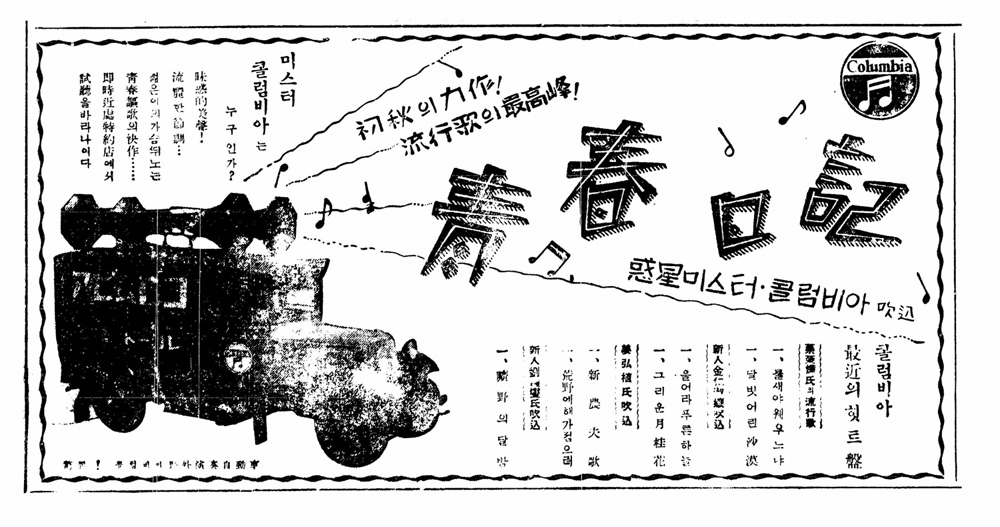 Columbia
初秋의 力作!
流行歌의 最高峰!
青春日記
惑星미스터·콜럼비아 吹込
미스터
콜럼비아는
누구인가?
味惑的美聲!
流麗한 節調…
젊은이의가슴뛰노는
青春謳歌의 快作……
即時近處特約店에서
試聽을바라나이다
콜럼비아
最近의 힛트盤
氏의 流行歌
一、물새야웨우느냐
一、달빗어린沙漠
新人金 吹込
一、울어라푸른하늘
一、그리운月桂花
姜弘植氏吹込
一、新農夫歌
一、荒野에해가점으러
新人 氏吹込
一、曠野의달밤
演奏自動車